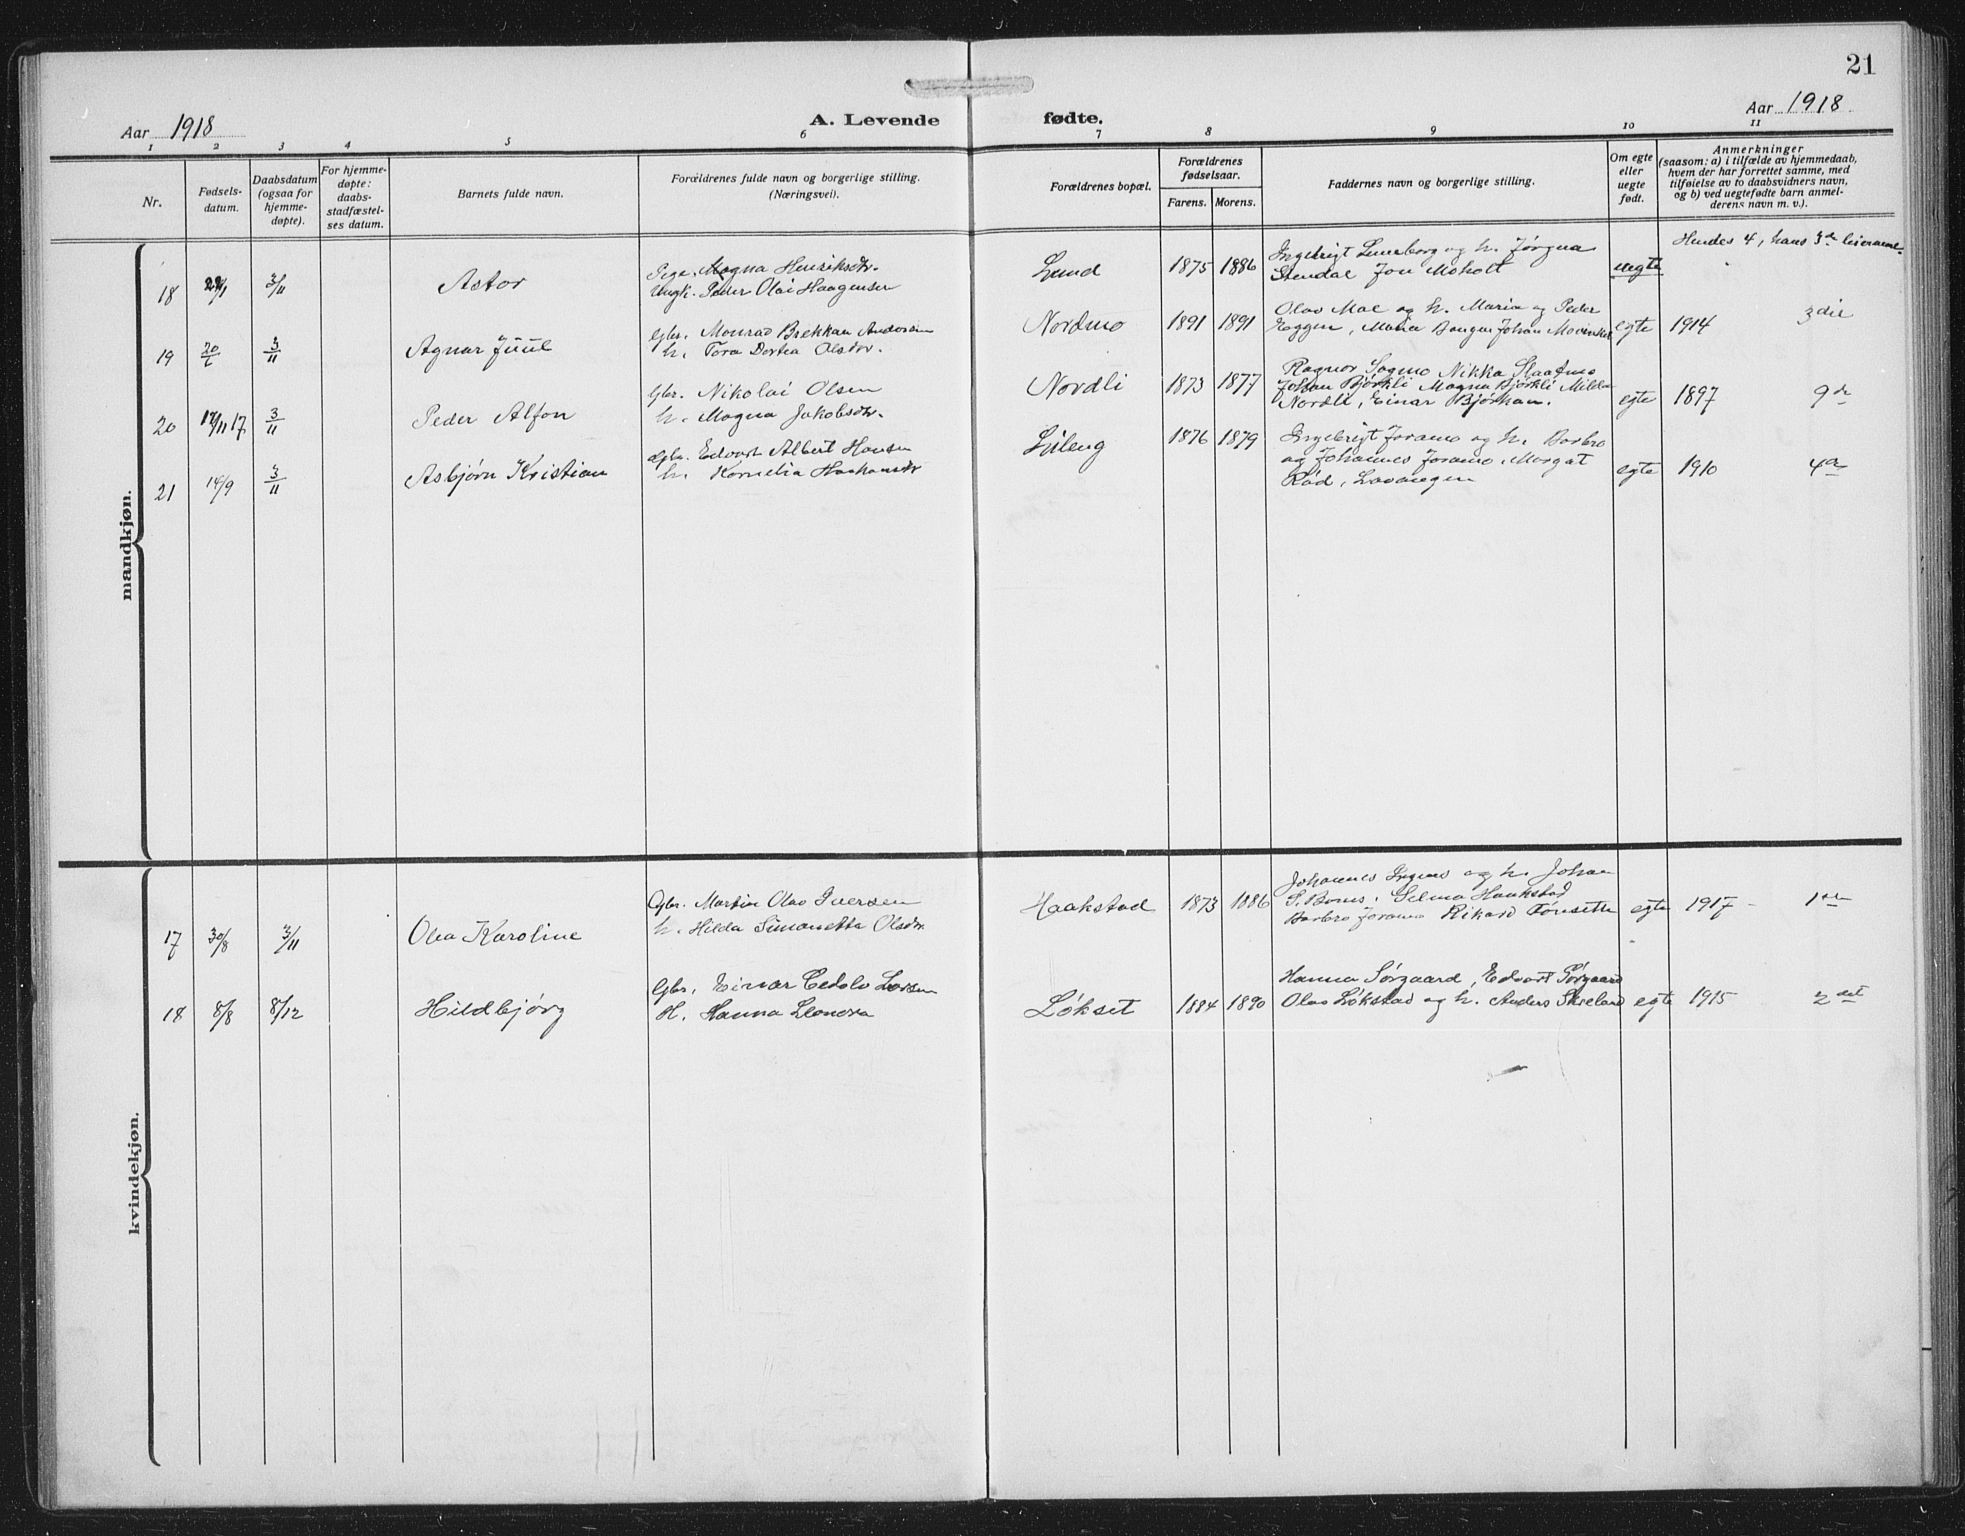 21
Aar 1918
A. Levende fødte.
Aar 1918
1 2 3 4 5 6 7 8 9 10 11
Nr.
Fødsels-
datum.
Daabsdatum
(ogsaa for
hjemme-
døpte).
For hjemme-
døpte:
daabs-
stadfæstel-
ses datum.
Barnets fulde navn.
Forældrenes fulde navn og borgerlige stilling.
(Næringsvei).
Forældrenes bopæl.
Forældrenes
fødselsaar.
Farens. Morens.
Faddernes navn og borgerlige stilling.
Om egte
eller
uegte
født.
Anmerkninger
(saasom: a) i tilfælde av hjemmedaab,
hvem der har forrettet samme, med
tilføielse av to daabsvidners navn,
og b) ved uegtefødte barn anmel-
derens navn m. v.).
mandkjøn.
18 3/11 Astor
Pige. Magna Henriksdtr.
Ungk. Peder Olai Haagensen
Lund 1875 1886
Ingebrigt Luneborg og h. Jørgna
Stendal Jon Moholt
uegte
Hendes 4, hans 3de
19 20/6 3/11 Agnar Juul
Gbr. Monrad Brekkan Andersen
h. Tora Dortea Olsdtr.
Nordmo 1891 1891
Olav Moe og h. Maria og Peder
Eggen, Maria Johan
egte 1914 3die
20 17/11 17 3/11 Peder Alfon
Gbr. Nikolai Olsen
h. Magna Jakobsdtr.
Nordli 1873 1877
Ragnor Sagmo Nikka Slaatmo
Johan Bjørkli Magna Bjørkli Milda
Nordli, Einar Bjørkan.
egte 1897 9de
21 14/9 3/11 Asbjørn Kristian
Gbr. Edvart Albert Hansen
h. Kornelia Haakonsdtr
Lileng 1876 1879
Ingebrigt Foramo og h. Barbro
og Johannes Foramo, Margat
Rød, Lavangen
egte 1910 4de
kvindekjøn.
17 30/8 3/11 Olea Karoline
Gbr. Martin Olav Iversen
h. Hilda Simonetta Olsdtr
Haakstad 1873 1886
Johannes og h. Johan
Selma Haakstad
Barbro Foramo Rikard Tønsette
egte 1917 1ste
18 8/8 8/12 Hildbjørg
Gbr. Einar Cedolv Larsen
H. Hanna Leonora
Løkset 1884 1890
Hanna Sørgaard, Edvart Sørgaard
Olav Løkstad og h. Anders Skreland
egte 1915 2det